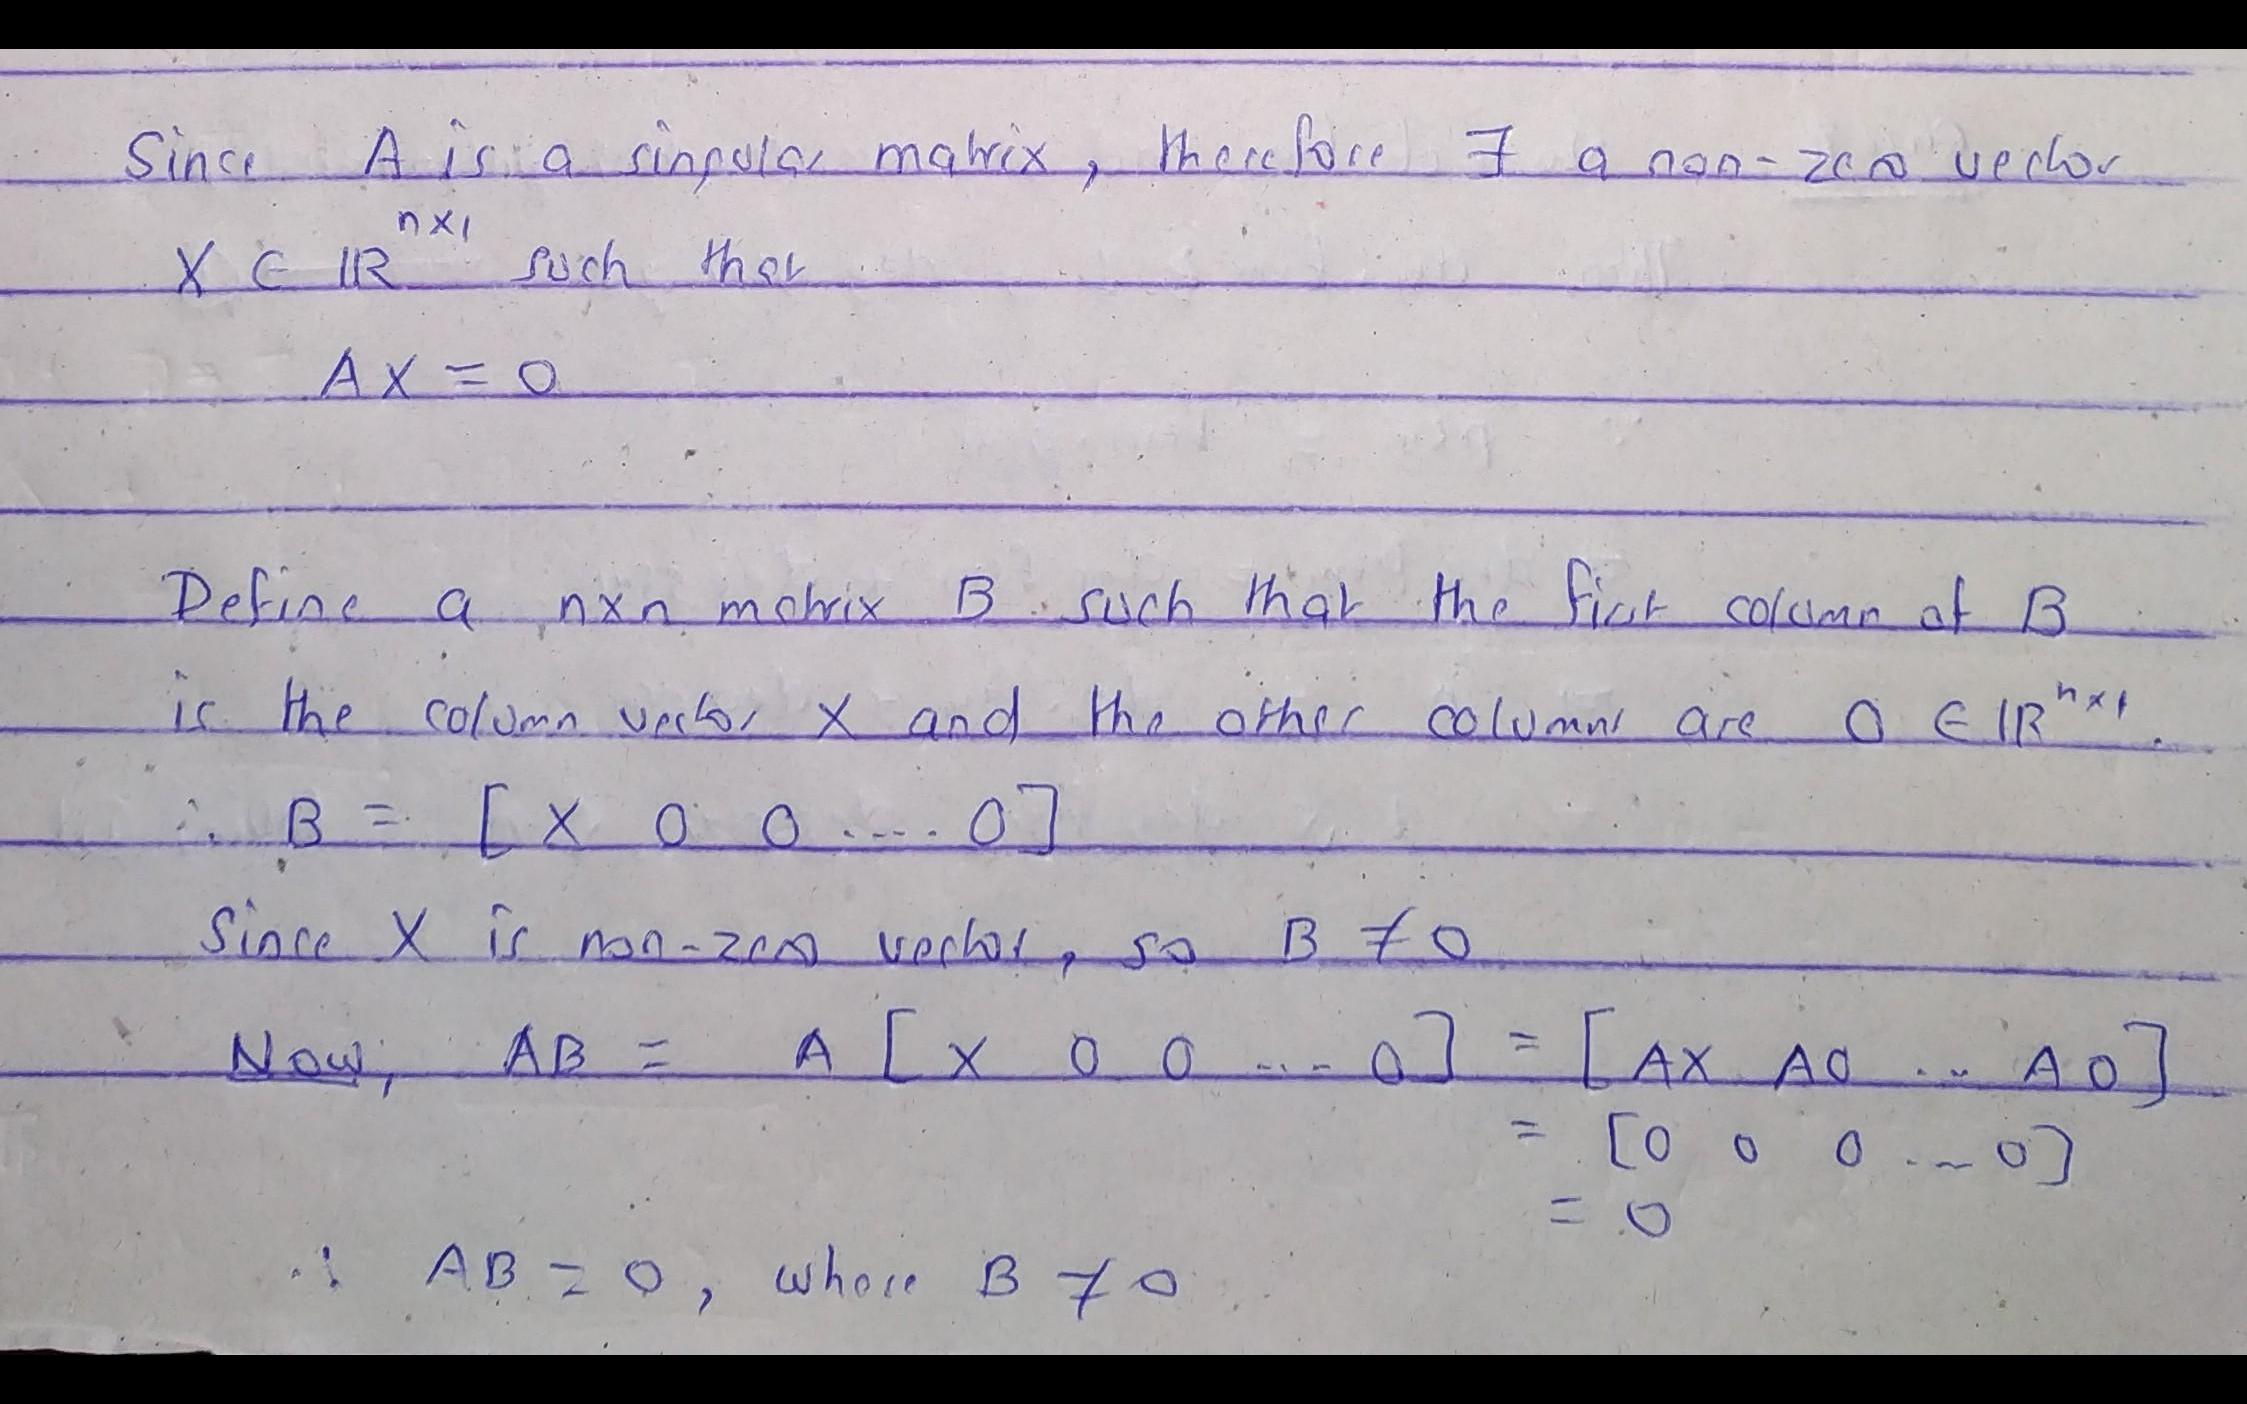 Since A is a singular matrix, therefore ∃ a non-zero vector
X ∈ ℝⁿˣ¹ such that
AX = 0
Define a n×n matrix B such that the first column of B
is the column vector X and the other columns are 0 ∈ ℝⁿˣ¹.
∴ B = [X 0 0 .... 0]
Since X is non-zero vector, so B ≠ 0
Now, AB = A [X 0 0 .... 0] = [AX A0 ... A0]
= [0 0 0 ... 0]
= 0
∴ AB = 0, where B ≠ 0